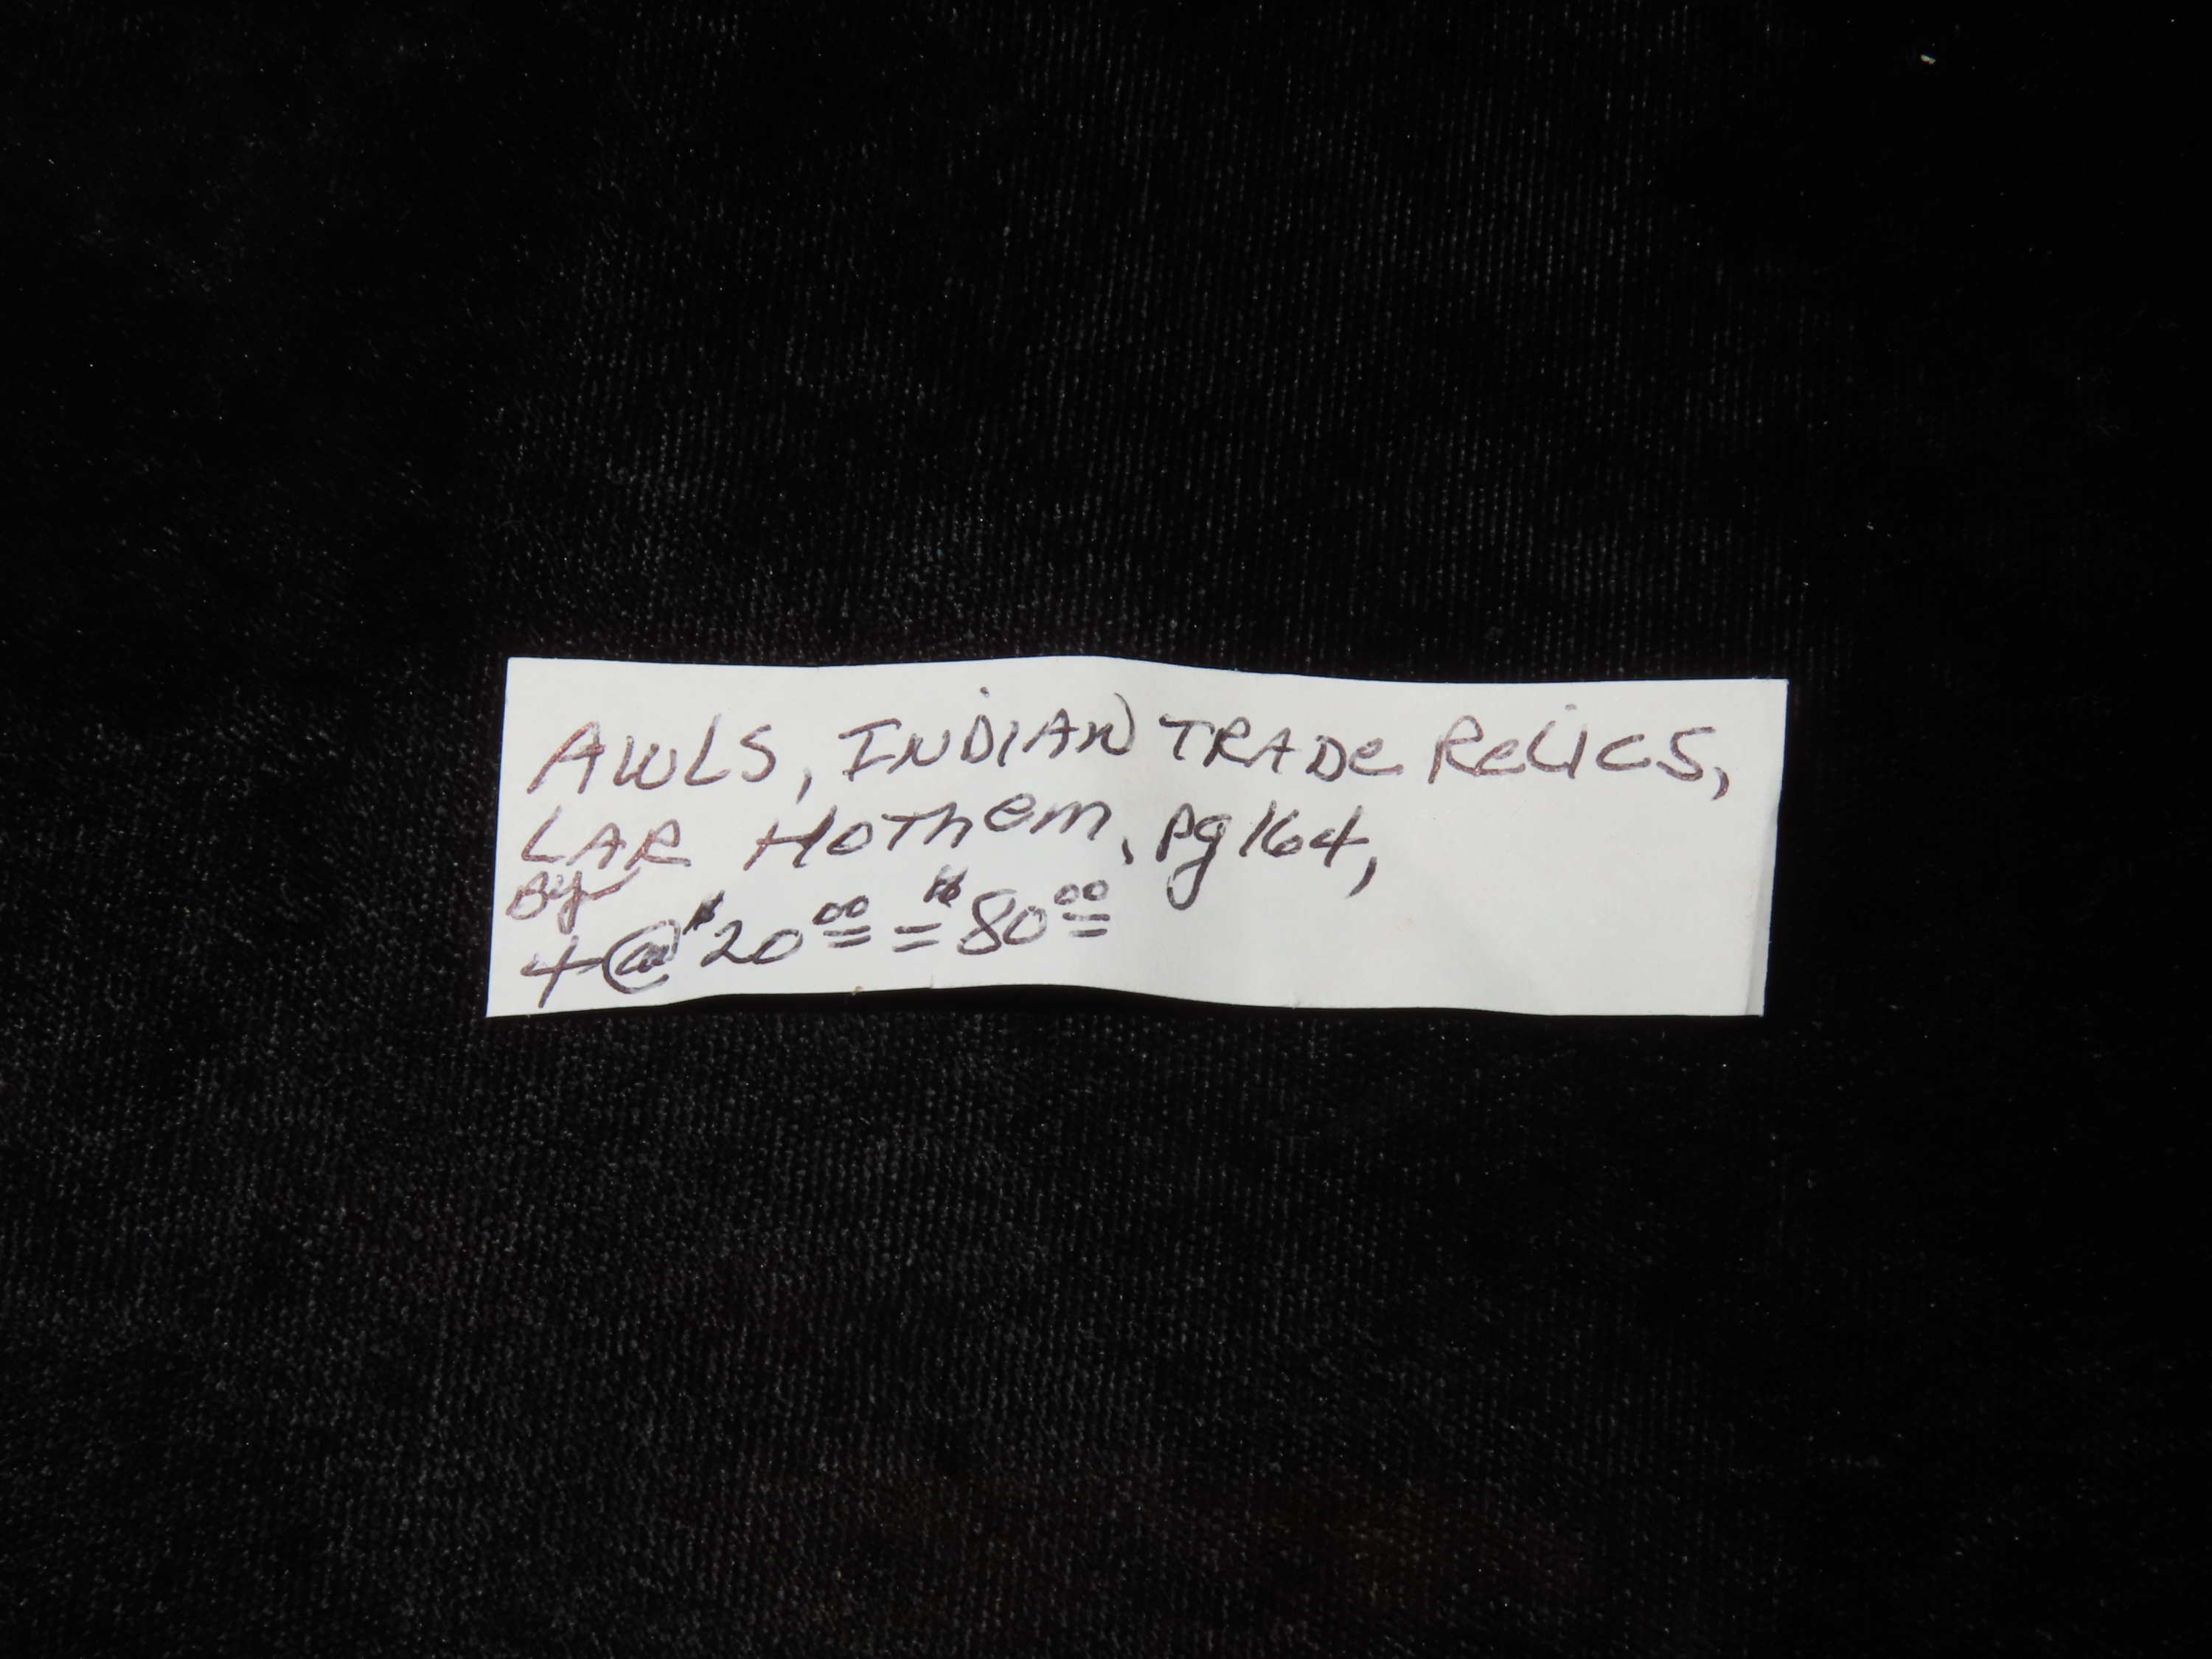 AWLS, INDIAN TRADE RELICS,
LAR HOTHEM, pg 164,
By
4@$20.00 = $80.00